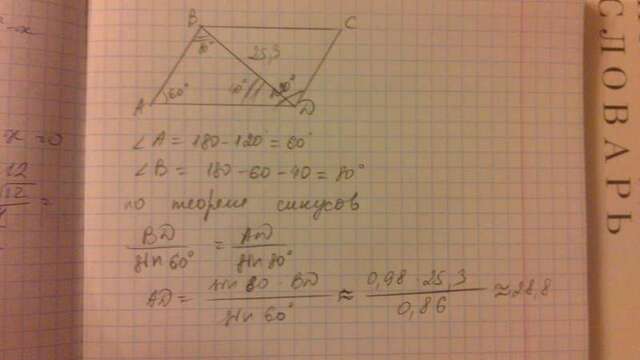 B
C
25,3
80°
60°
40°
120°
A
D
∠A = 180-120 = 60°
∠B = 180-60-40 = 80°
по теореме синусов
BD / sin 60° = AD / sin 80°
AD = sin 80 · BD / sin 60° ≈ 0,98 · 25,3 / 0,86 ≈ 28,8
x = 0
12
√12
СЛОВАРЬ